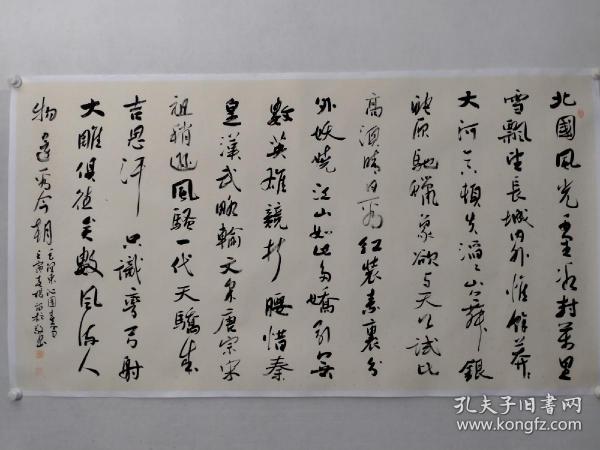 北國風光千里冰封萬里
雪飄望長城内外惟餘莽〻
大河上下頓失滔〻山舞銀
蛇原馳蠟象欲与天公試比
高須晴日看紅裝素裹分
外妖嬈江山如此多嬌引無
數英雄競折腰惜秦
皇漢武略輸文采唐宗宋
祖稍遜風騷一代天驕成
吉思汗只識彎弓射
大雕俱往矣數風流人
物還看今朝
毛澤東沁園春雪
壬寅
孔夫子旧书网
www.kongfz.com